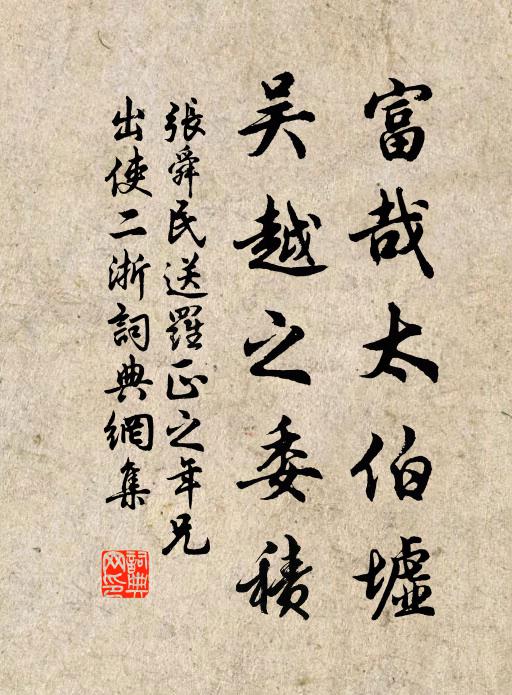 富哉太伯墟
吴越之委積
張舜民送羅正之年兄
出使二浙詞典網集
詞典
网印